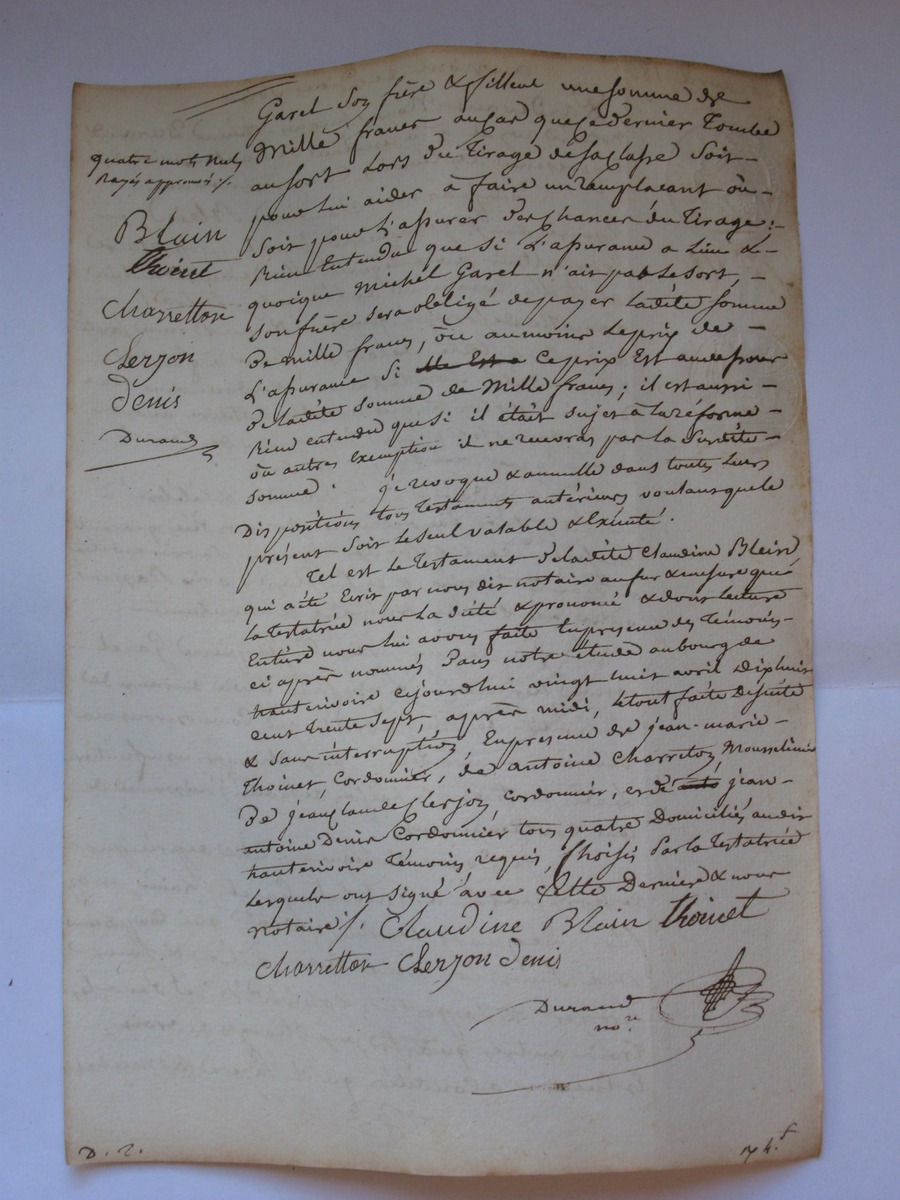 Garel son frère & filleul une somme de
Mille francs au cas que ce dernier Tombe
quatre mots nuls
Rayés approuvés ./.
au sort Lors du Tirage de sa classe soit
pour lui aider à faire un ramplacant où
Blain
soit pour L'assurer des chances du tirage :
Thoinet
Bien entendu que si L'assurance a Lieu &
quoique Michel Garel n'ait pas Le sort,
Charretton
son frère sera obligé de payer Ladite somme
De mille francs, où au moins Le prix de
Clerjon
L'assurance si Ce prix Est au dessous
Denis
De Ladite somme de Mille francs ; il est aussi
Durand
Bien entendu que si il était sujet à la réforme
où autres Exemption il ne recevra pas la susdite
somme. je revoque & annulle dans toutes Leurs
Dispositions tous Testaments antérieurs voulans que le
présent soit Le seul valable & Exécuté.
Tel est Le Testament De Ladite Claudine Blein
qui a été Ecrit par nous dit notaire au fur & mesure que
La Testatrice nous L'a dicté & prononcé & dont Lecture
Entière nous lui avons faite En presence des Témoins
ci après nommés Dans notre étude au bourg de
hauterivoire cejourd'hui vingt huit avril Dix huit
cent trente sept, après midi, Le tout faite De suite
& sans interruption, En presence de jean-marie
Thoinet, Cordonnier, de Antoine Charreton, Mousselinier
De jean claude Clerjon, cordonnier, et de jean
antoine Denis Cordonnier tous quatre Domiciliés audit
hauterivoire Témoins requis, Choisis Par la Testatrice
Lesquels ont signé avec Cette Dernière & nous
notaire ./. Claudine Blain Thoinet
Charretton Clerjon Denis
Durand
no.re
D. 2.